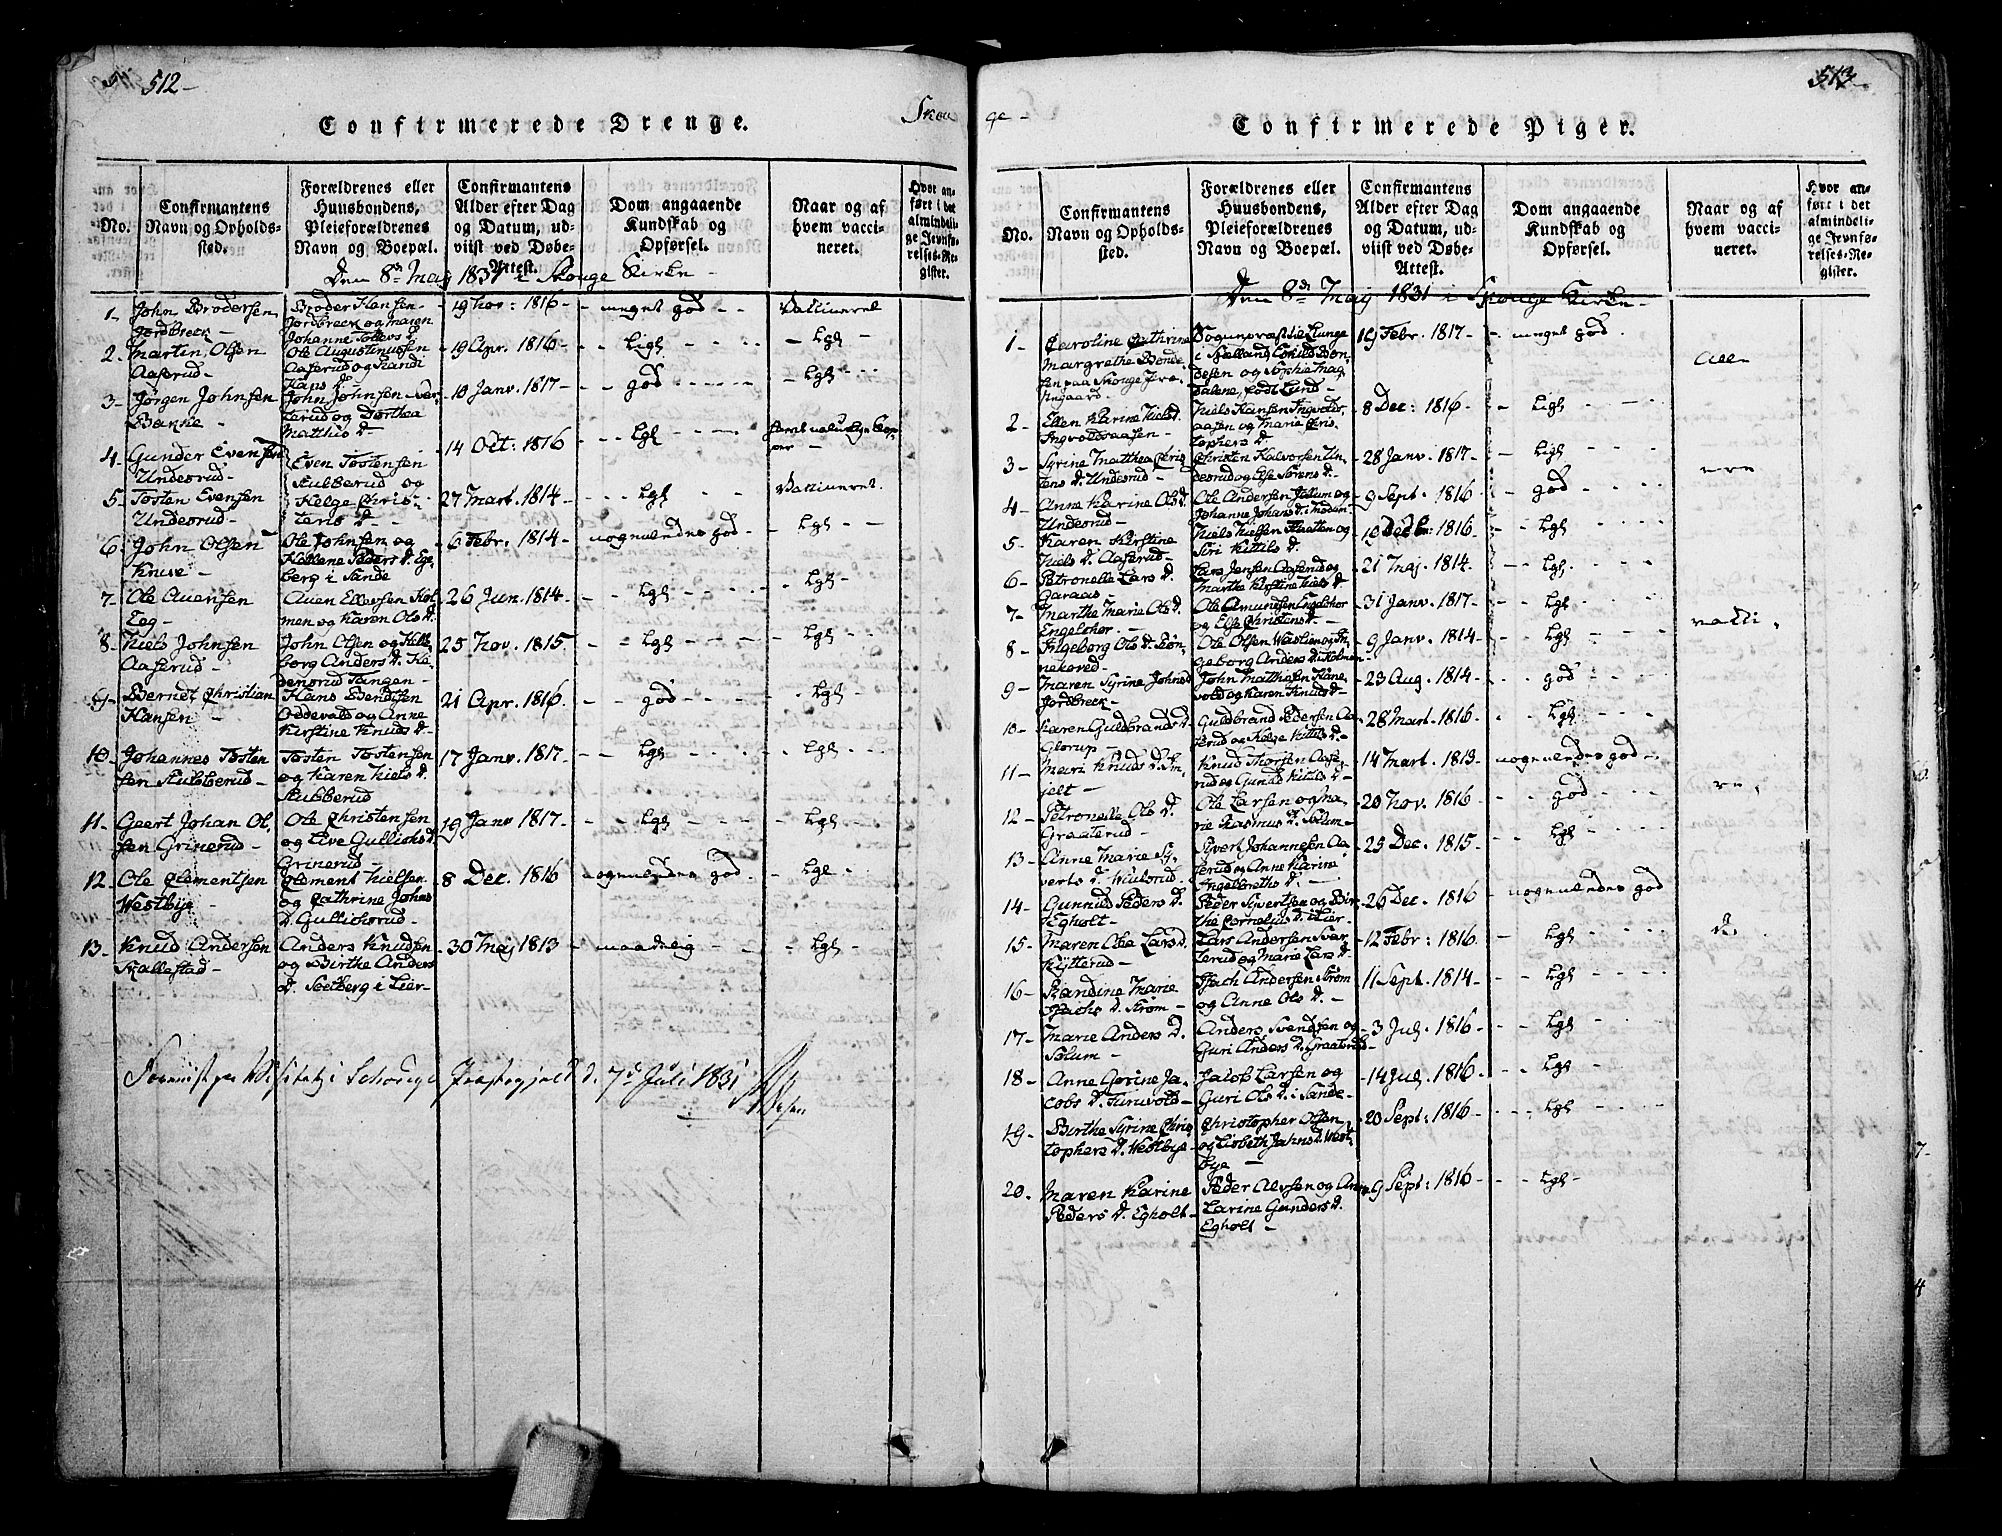 512-
Confirmerede Drenge.
Skou
No.
Confirmantens Navn og Opholdssted.
Forældrenes eller Huusbondens, Pleieforældrenes Navn og Boepæl.
Confirmantens Alder efter Dag og Datum, udviist ved Døbe-Attest.
Dom angaaende Kundskab og Opførsel.
Naar og af hvem vaccineret.
Hvor anført i det almindelige Jevnførelses-Register.
Den 8de May 1831 i Skouge Kirke -
1- John Brodersen Jordbreck - Broder Hansen Jordbreck og Johanne -19 Nov: 1816- - meget god - -
2- Martin Olsen Aaserud - Ole Augustinussen Aaserud og Randi Hans D. -19 Apr. 1816- - Ligl - - - - Lgl - -
3- Jørgen Johnsen Bakke - John Johnsen og Dorthea Matthis D. -10 Janv. 1817- - god - - - - Lgl - -
4- Gunder Evensen Undesrud - -14 Oct: 1816 - - Lgl - - -
5- Tosten Evensen Undesrud - Even Tostensen Stubberud og Helge Christens D - 27 Mart. 1814- - - Lgl - - Vaccineret.
6- John Olsen Knive - Ole Johnsen og Peders D. Egeberg i Sande -6 Febr. 1814- nogenledes god- - Lgl - -
7- Ole Auensen Eeg - Auen Ellevsen Holmen og Karen Ols D. -26 Jun. 1814- - - Lgl - - - Lgl -
8- Niels Johnsen Aaserud - John Olsen og Anders D. Tangen - 25 Nov. 1815. - - Lgl - - - Lgl -
9- Berndt Christian Hansen - Hans Bendtsen Oddevald og Anne Kirstine Knuds D- 21 Apr. 1816. - - god - - - Lgl -
10- Johannes Tostensen Stubberud - Tosten Tostensen og Karen Niels D. Stubberud 17 Janv. 1817. - - Lgl - - - Lgl -
11- Geert Johan Olsen Grinerud - Ole Christensen og Live Gullichs D Grinerud - 19 Janv 1817- - - Lgl - - - Lgl -
12- Ole Clementsen Westbye - Clement Nielsen og Cathrine Johns D. Gullichsrud - 8 Dec. 1816 - nogenledes god. - Lgl -
13- Knud Andersen Skallestad - Anders Knudsen og Birthe Anders D. Solberg i Lier- -30 Maj 1813 - maadelig - - Lgl -
Foreviist paa Visitatz i Schouge Præstegjeld d. 7d Juli 1831
513-
ge -
Confirmerede Piger.
No.
Confirmantens Navn og Opholdssted.
Forældrenes eller Huusbondens, Pleieforældrenes Navn og Boepæl.
Confirmantens Alder efter Dag og Datum, udviist ved Døbe-Attest.
Dom angaaende Kundskab og Opførsel.
Naar og af hvem vaccineret.
Hvor anført i det almindelige Jevnførelses-Register.
Den 8de May 1831 i Skouge Kirke -
1- Caroline Cathrine Margrethe paa Skouge Præstegaard - Sognepræst i Sælland og Sophie Magdalene, født Lund - 19 Febr. 1817- - meget god.
Alle
2- Ellen Karine Niels D. Ingvoldsaasen - Niels Hansen Ingvoldsaasen og Marie Christophers D. - 8 Dec: 1816- - - Ligl - - -
3- Syrine Matthea Christens D. Undesrud - Christen Halvorsen Undesrud og Else Sørens D. -28 Janv. 1817- - - Ligl - - -
ere
4- Anne Karine Ols D. Undesrud - Ole Andersen Solum og Johanne Johans D. i Modum -9 Sept. 1816 - - god - - -
5- Karen Kirstine Niels D. Aaserud - Niels Nielsen og Siri Kittils D. -10 Dec: 1816. - - Lgl - - -
6- Petronelle Lars D. Garaas - Lars Jensen Aaserud og Marthe Kirstine Niels D. -21 Maj. 1814. - - Lgl. - - -
7- Marthe Marie Ols D. Engelshor - Ole Amundsen Engelshor og Else Christens D. -31 Janv. 1817- - - Lgl - - -
vacci -
8- Ingeborg Ols D. - Ole Olsen og Ingeborg Anders D. Holmen -9 Janv. 1814- - - Lgl - - -
9- Maren Syrine Johns D Jordbreck - John Matthisen Hanevold og Karen Knuds D- -23 Aug. 1814- - - god - - -
10- Karen Guldbrands D. Glorup - Guldbrand Pedersen Aaserud og Helge Kittils D. -28 Mart. 1816- - - Lgl - - -
11- Mari Knuds D. - Knud Thorsen Aaserud og Gunild Kittils D - -14 Mart. 1813- nogenledes god -.
ne,
12- Petronelle Ols D. Graaterud - Ole Larsen og Marie Rasmus D. Solum- -20 Nov. 1816 - - god - - -
13- Anne Marie Syverts D. - Syvert Johannesen Aaserud og Anne Karine Ingelbreths D. - -25 Dec. 1815- - - Lgl - - -
14- Gunnild Peders D. Egholt - Peder Syvertsen og Birthe Cornelius D. i Lier- -26 Dec. 1816 - nogenledes god
15- Maren Lars D. Kytterud - Lars Andersen og Marie Lars D. -12 Febr: 1816. - - Lgl - - -
16- Randine Marie Isachs D. Strøm - Isach Andersen Strøm og Anne Ols D. - -11 Sept. 1814- - - Lgl - - -
17- Marie Anders D. Solum - Anders Svendsen og Guri Anders D. Graaterud- -3 Jul. 1816- - - Lgl - - -
18- Anne Gorine Jacobs D. - Jacob Larsen og Guri Ols D. i Sande- -14 Jul. 1816- - - Lgl - - -
19- Birthe Syrine Christophers D. Westbye - Christopher Olsen og Lisbeth Jahns D. Westbye - -20 Sept: 1816- - - - Lgl - - -
20- Maren Karine Peders D. Egholt - Peder Alvsen og Anne Karine Gunders D. Egholt - -9 Sept: 1816- - - Lgl -